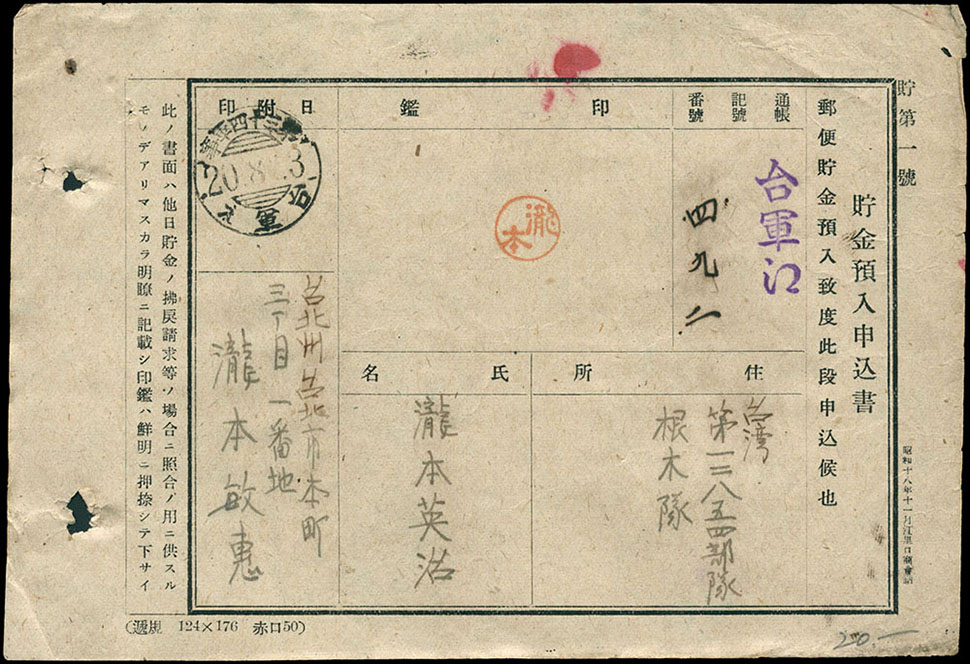 貯第一號
貯金預入申込書
郵便貯金預入致度此段申込候也
通帳
記號
番號
台軍江
四九二
印鑑
瀧本
住所
台湾
第一二八五四部隊
根木隊
氏名
瀧本英浩
日附印
20.8.23
台北州台北市本町
三丁目一番地
瀧本敏惠
此ノ書面ハ他日貯金ノ拂戻請求等ノ場合ニ照合ノ用ニ供スル
モノデアリマスカラ明瞭ニ記載シ印鑑ハ鮮明ニ押捺シテ下サイ
124×176 赤口50)
200.—